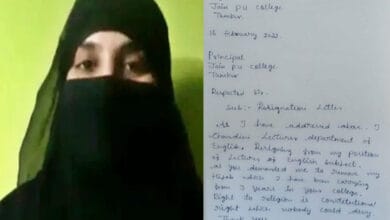 Jain pu college
Tumkur
16 February 2022
Principal
Jain pu college
Tumkur
Respected Sir.
Sub:- Resignation Letter
As I have addressed above. I
Chandini Lecturer department of
English, Resigning from my position
of Lecturer of English subject.
as you demanded me to remove my
Hijab which I have been carrying
from 3 years in your college.
Right to religion is constitutional
right which nobody could deny.
Thank you